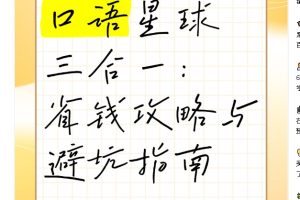 口语星球
三合一:
省钱攻略与
避坑指南